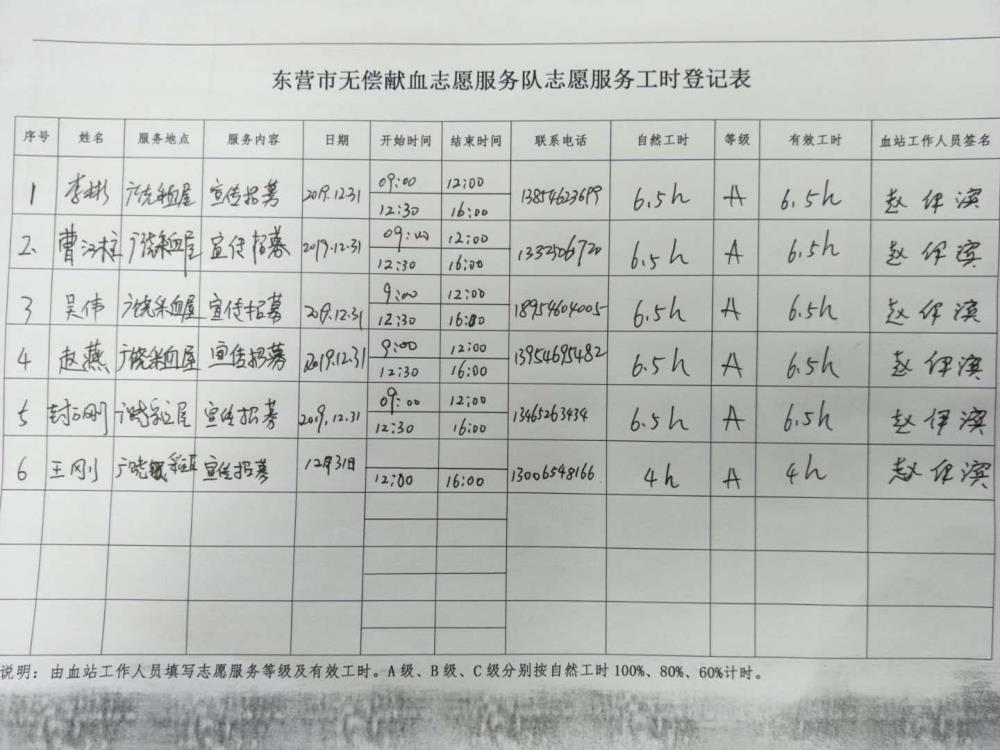 东营市无偿献血志愿服务队志愿服务工时登记表
序号 姓名 服务地点 服务内容 日期 开始时间 结束时间 联系电话 自然工时 等级 有效工时 血站工作人员签名
1 李彬 广饶采血屋 宣传招募 2019.12.31 09:00 12:00 13854623699 6.5h A 6.5h 赵伊滨
12:30 16:00
2. 曹江柱 广饶采血屋 宣传招募 2019.12.31 09:00 12:00 6.5h A 6.5h 赵伊滨
12:30 16:00
3 吴伟 广饶采血屋 宣传招募 2019.12.31 9:00 12:00 18954604005 6.5h A 6.5h 赵伊滨
12:30 16:00
4 赵燕 广饶采血屋 宣传招募 2019.12.31 9:00 12:00 13954695482 6.5h A 6.5h 赵伊滨
12:30 16:00
5 宣传招募 2019.12.31 09:00 12:00 13465263434 6.5h A 6.5h 赵伊滨
12:30 16:00
6 王刚 宣传招募 12月31日 13006548166 4h A 4h 赵伊滨
12:00 16:00
说明：由血站工作人员填写志愿服务等级及有效工时。A级、B级、C级分别按自然工时100%、80%、60%计时。